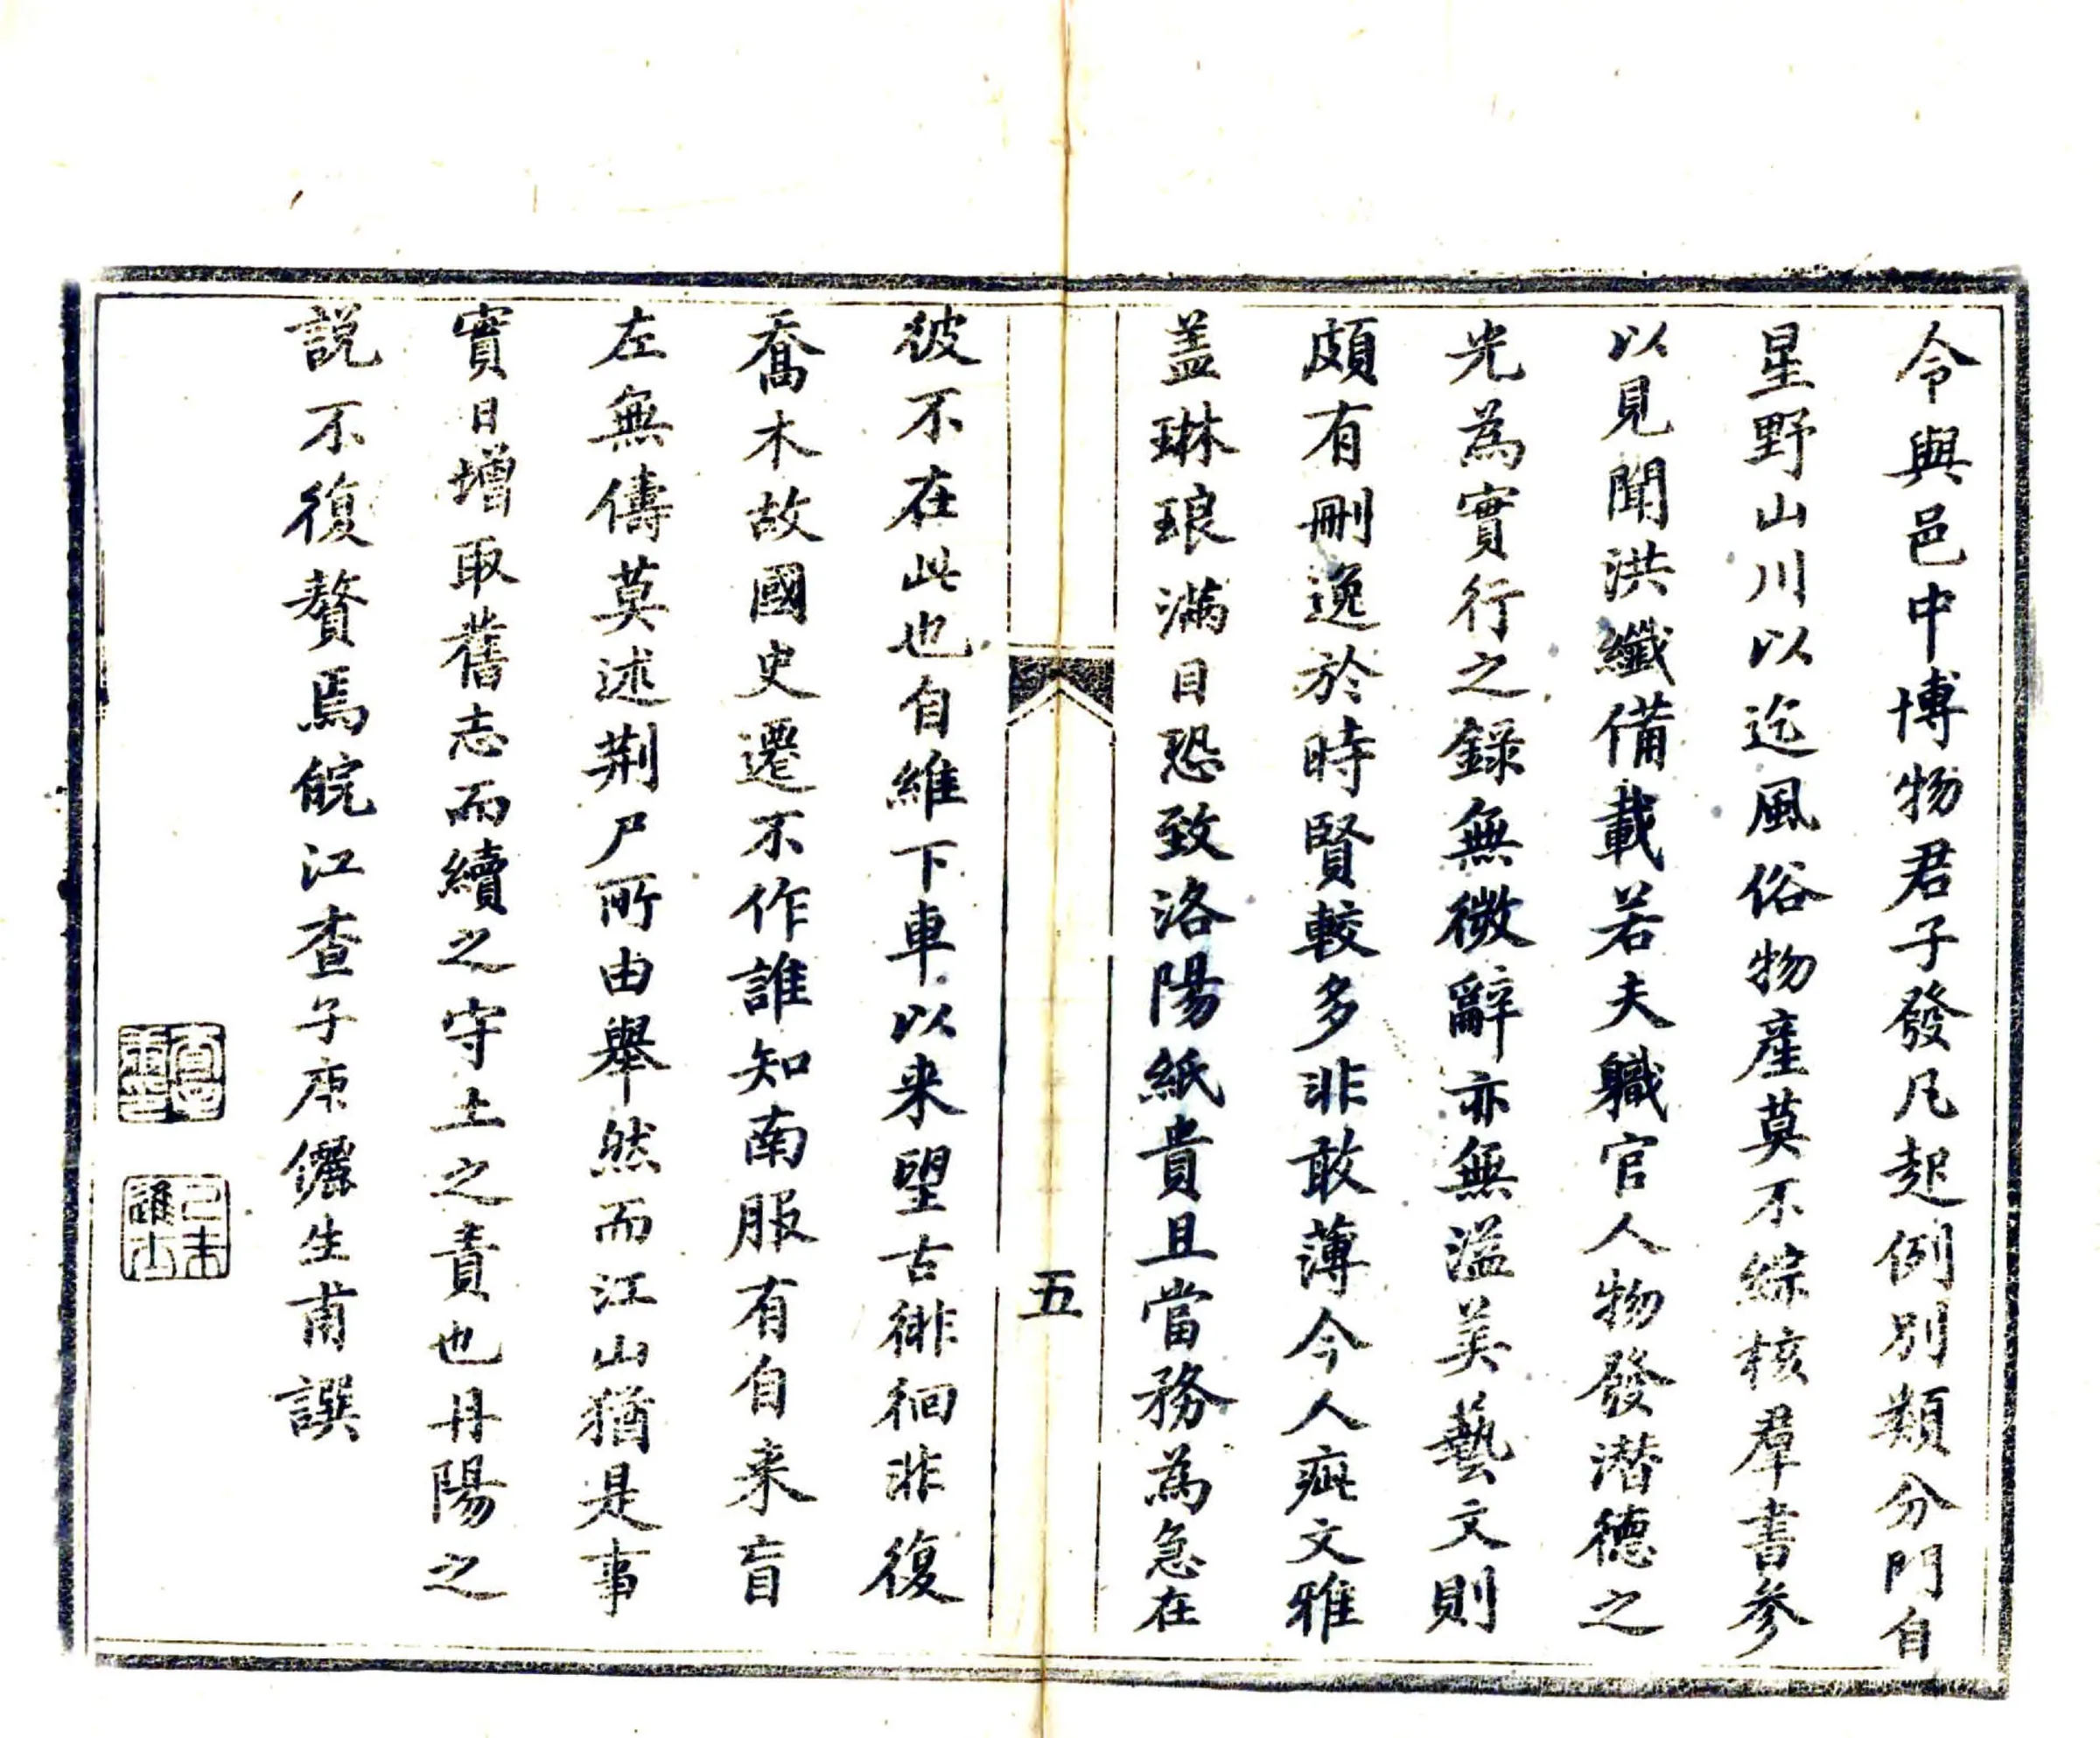 令與邑中博物君子發凡起例別類分門自
星野山川以迄風俗物產莫不綜核羣書參
以見聞洪纖備載若夫職官人物發潛德之
光為實行之錄無微辭亦無溢美藝文則
頗有刪逸於時賢較多非敢薄今人疵文雅
蓋琳琅滿目恐致洛陽紙貴且當務為急在
五
彼不在此也自維下車以来望古徘徊非復
喬木故國史遷不作誰知南服有自来盲
左無儔莫述荆尸所由舉然而江山猶是事
實日增取舊志而續之守土之責也丹陽之
説不復贅焉皖江查子庚儷生甫譔
己未